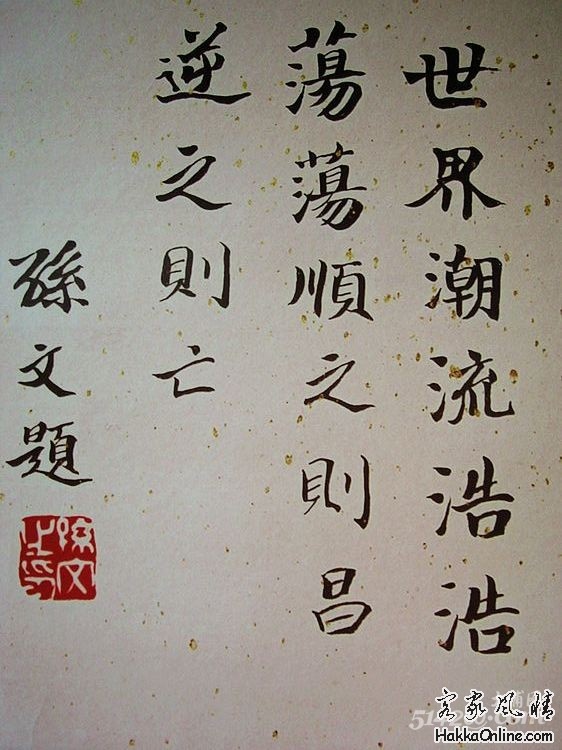 世界潮流浩浩
蕩蕩順之則昌
逆之則亡
孫文題
孫文之印
客家風情
HakkaOnline.com